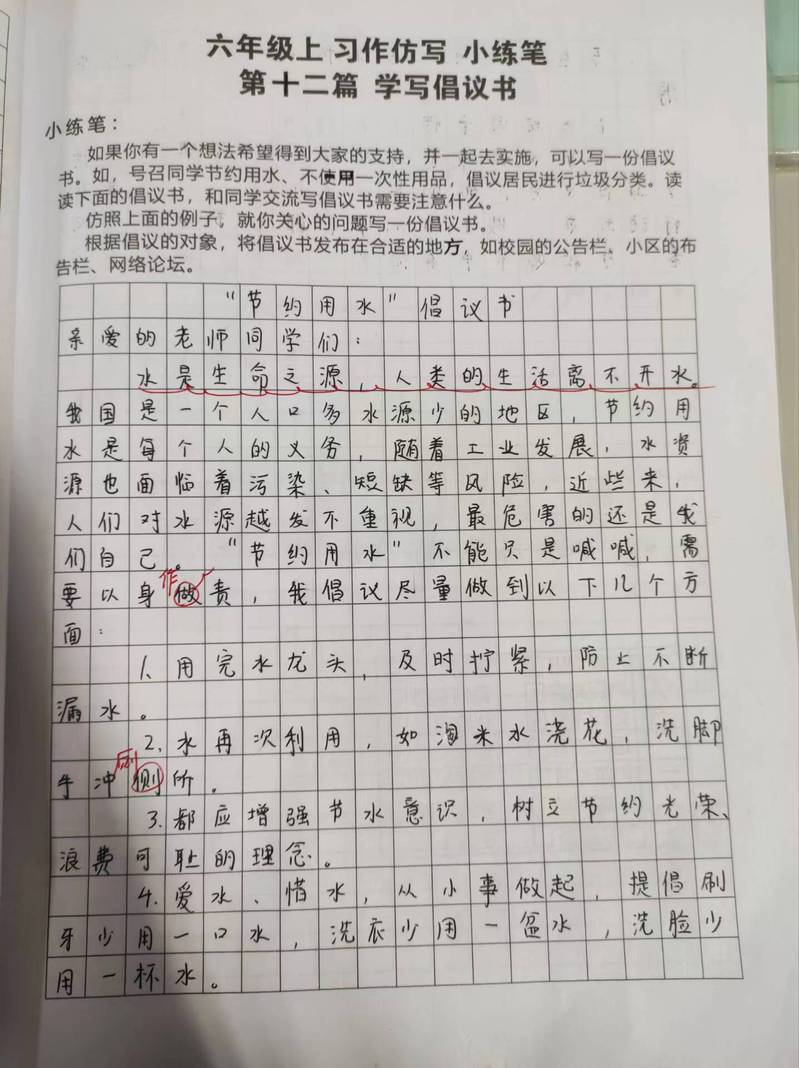 六年级上 习作仿写 小练笔
第十二篇 学写倡议书
小练笔：
如果你有一个想法希望得到大家的支持，并一起去实施，可以写一份倡议
书。如，号召同学节约用水、不使用一次性用品，倡议居民进行垃圾分类。读
读下面的倡议书，和同学交流写倡议书需要注意什么。
仿照上面的例子，就你关心的问题写一份倡议书。
根据倡议的对象，将倡议书发布在合适的地方，如校园的公告栏、小区的布
告栏、网络论坛。
“节约用水”倡议书
亲爱的老师同学们：
水是生命之源，人类的生活离不开水。
我国是一个人口多水源少的地区，节约用
水是每个人的义务，随着工业发展，水资
源也面临着污染、短缺等风险，近些来，
人们对水源越发不重视，最危害的还是我
们自己。“节约用水”不能只是喊喊，需
作
要以身做责，我倡议尽量做到以下几个方
面：
1、用完水龙头，及时拧紧，防止不断
漏水。
2、水再次利用，如淘米水浇花，洗脚
厕
水冲侧所。
3、都应增强节水意识，树立节约光荣、
浪费可耻的理念。
4、爱水、惜水，从小事做起，提倡刷
牙少用一口水，洗衣少用一盆水，洗脸少
用一杯水。